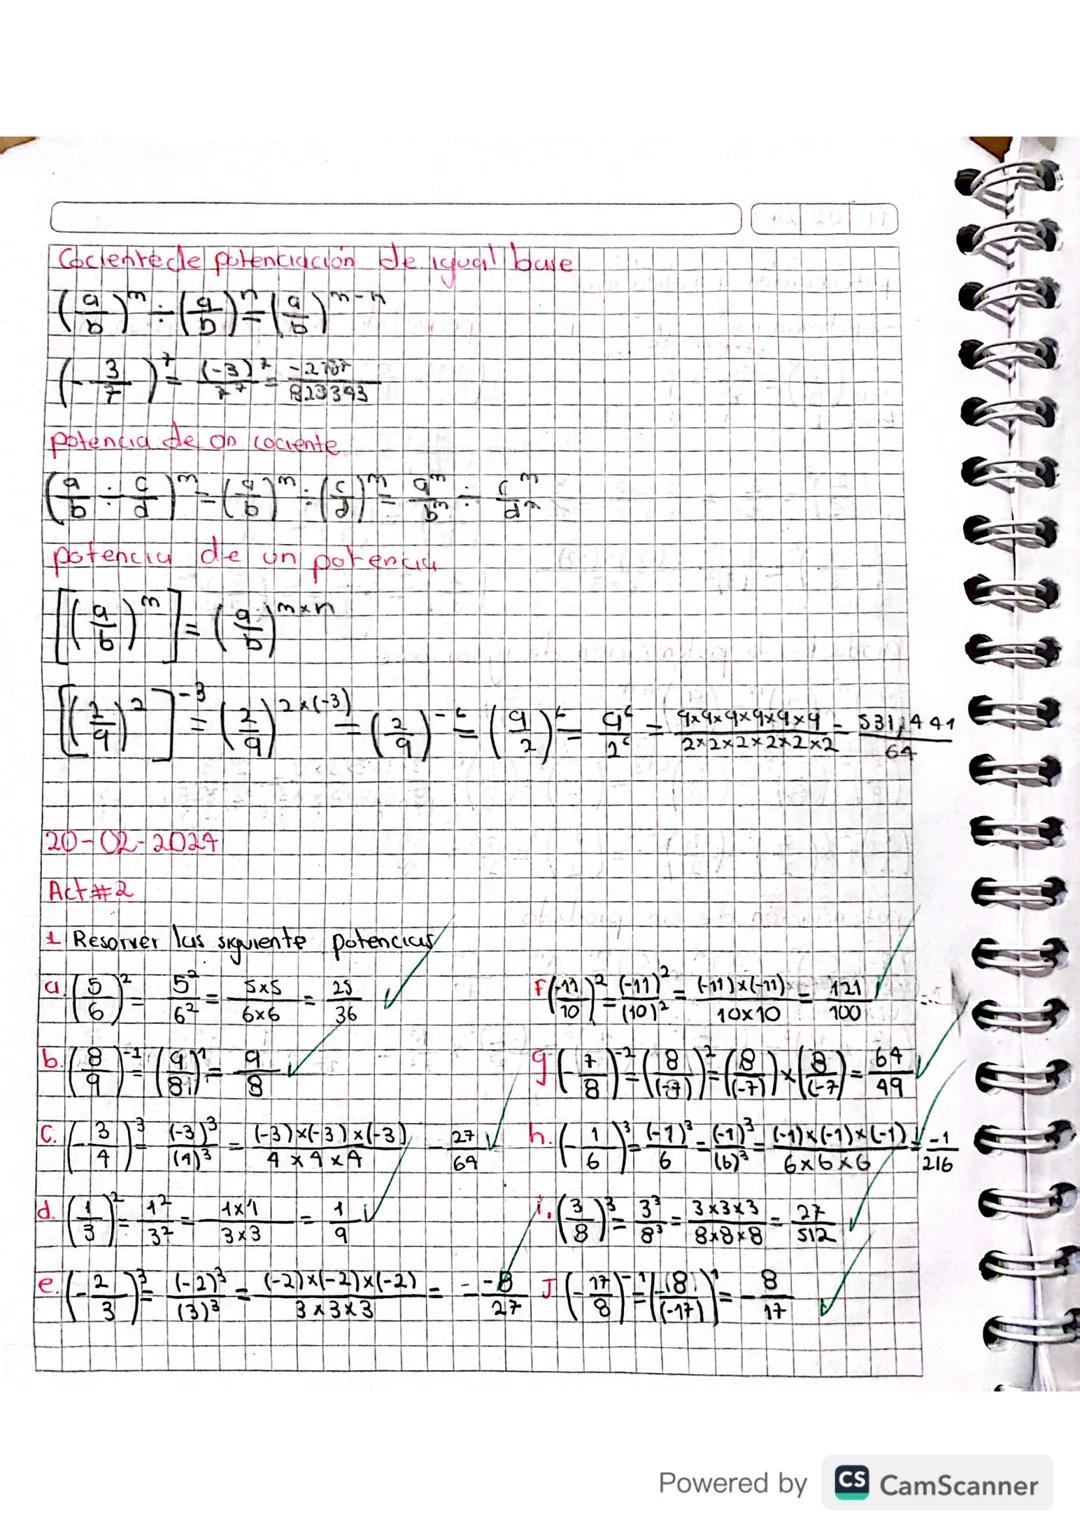 Cociente de potenciación de igual base
(a/b)^m ÷ (a/b)^n = (a/b)^m-n
(- 3/7)^7 = (-3)^7/7^7 = -2187/823343
potencia de un cociente
(a/b ÷ c/d)^m = (a/b)^m ÷ (c/d)^m = a^m/b^m ÷ c^m/d^m
potencia de un potencia
[(a/b)^m] = (a/b)^m×n
[(2/9)^2]^-3 = (2/9)^2×(-3) = (2/9)^-6 = (9/2)^6 = 9^6/2^6 = 9×9×9×9×9×9/2×2×2×2×2×2 = 531,441/64
20-02-2024
Act#2
1 Resorver las siguiente potencias
a. (5/6)^2 = 5^2/6^2 = 5×5/6×6 = 25/36
b. (8/9)^-1 = (9/8)^1 = 9/8
C. (- 3/4)^3 = (-3)^3/(4)^3 = (-3)×(-3)×(-3)/4×4×4 - 27/64
d. (1/3)^2 = 1^2/3^2 = 1×1/3×3 = 1/9
e. (- 2/3)^3 = (-2)^3/(3)^3 = (-2)×(-2)×(-2)/3×3×3 = - -8/27
F (-11/10)^2 = (-11)^2/(10)^2 = (-11)×(-11)/10×10 = 121/100
g (- 7/8)^-2 = (8/(-7))^2 = (8/(-7)) × (8/(-7) = 64/49
h. (- 1/6)^3 = (-1)^3/6 = (-1)^3/(6)^3 = (-1)×(-1)×(-1)/6×6×6 = -1/216
i. (3/8)^3 = 3^3/8^3 = 3×3×3/8×8×8 = 27/512
J (- 17/8)^-1 = (8/(-17))^1 = - 8/17
Powered by CS CamScanner